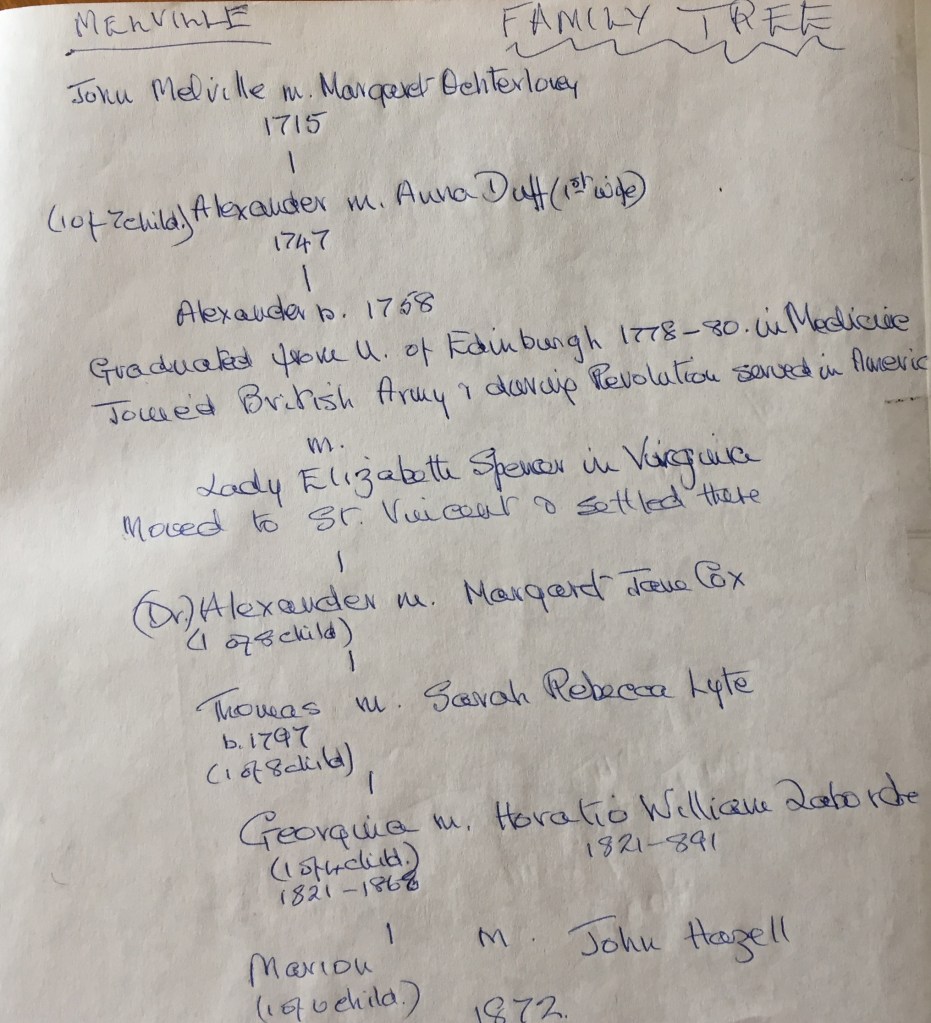 MELVILLE FAMILY TREE
John Melville m. Margaret Ochterloney
1715
(1 of 7 child.) Alexander m. Anna Duff (1st wife)
1747
Alexander b. 1758
Graduated from U. of Edinburgh 1778-80. in Medicine
Joined British Army & during Revolution served in Americ
m.
Lady Elizabeth Spencer in Virginia
Moved to St. Vincent & settled there
(Dr.) Alexander m. Margaret Jane Cox
(1 of 8 child)
Thomas m. Sarah Rebecca Lyte
b. 1797
(1 of 8 child)
Georgina m. Horatio William Laborde
(1 of 4 child.) 1821-891
1821-1868
Marion M. John Hazell
(1 of 6 child.) 1872.